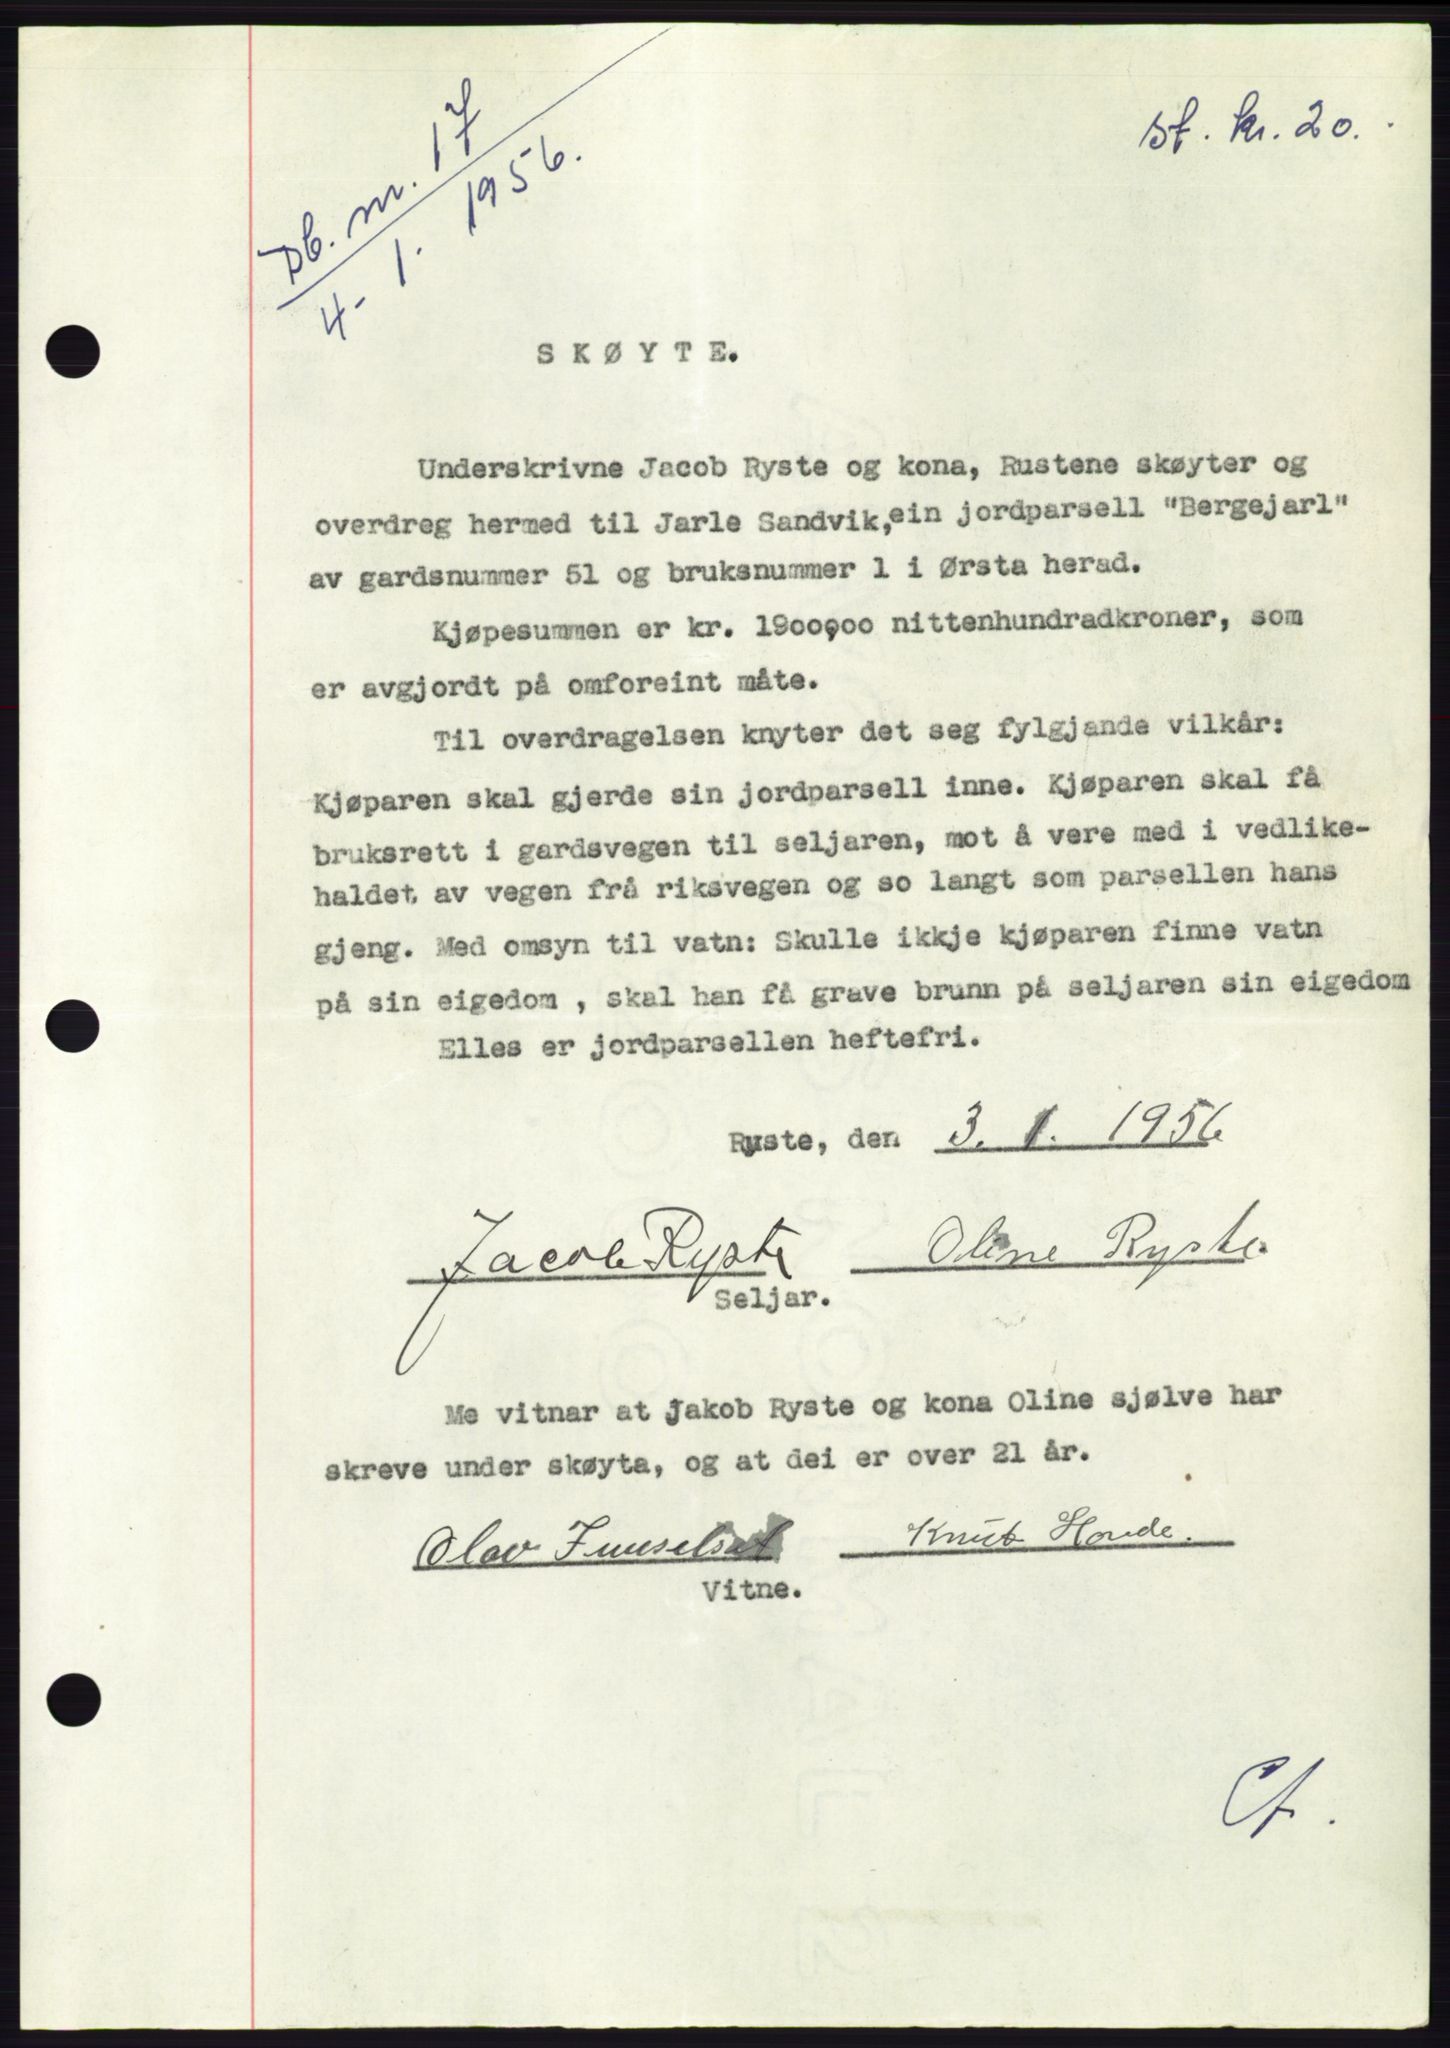 Db. nr. 17
4-1. 1956.
st. kr. 20.
SKØYTE.
Underskrivne Jacob Ryste og kona, Rustene skøyter og
overdreg hermed til Jarle Sandvik, ein jordparsell "Bergejarl"
av gardsnummer 51 og bruksnummer 1 i Ørsta herad.
Kjøpesummen er kr. 1900,00 nittenhundradkroner, som
er avgjordt på omforeint måte.
Til overdragelsen knyter det seg fylgjande vilkår:
Kjøparen skal gjerde sin jordparsell inne. Kjøparen skal få
bruksrett i gardsvegen til seljaren, mot å vere med i vedlike-
haldet av vegen frå riksvegen og so langt som parsellen hans
gjeng. Med omsyn til vatn: Skulle ikkje kjøparen finne vatn
på sin eigedom , skal han få grave brunn på seljaren sin eigedom
Elles er jordparsellen heftefri.
Ryste, den 3. 1. 1956
Jacob Ryste Oline Ryste.
Seljar.
Me vitnar at Jakob Ryste og kona Oline sjølve har
skreve under skøyta, og at dei er over 21 år.
Olav Knut Hovde.
Vitne.